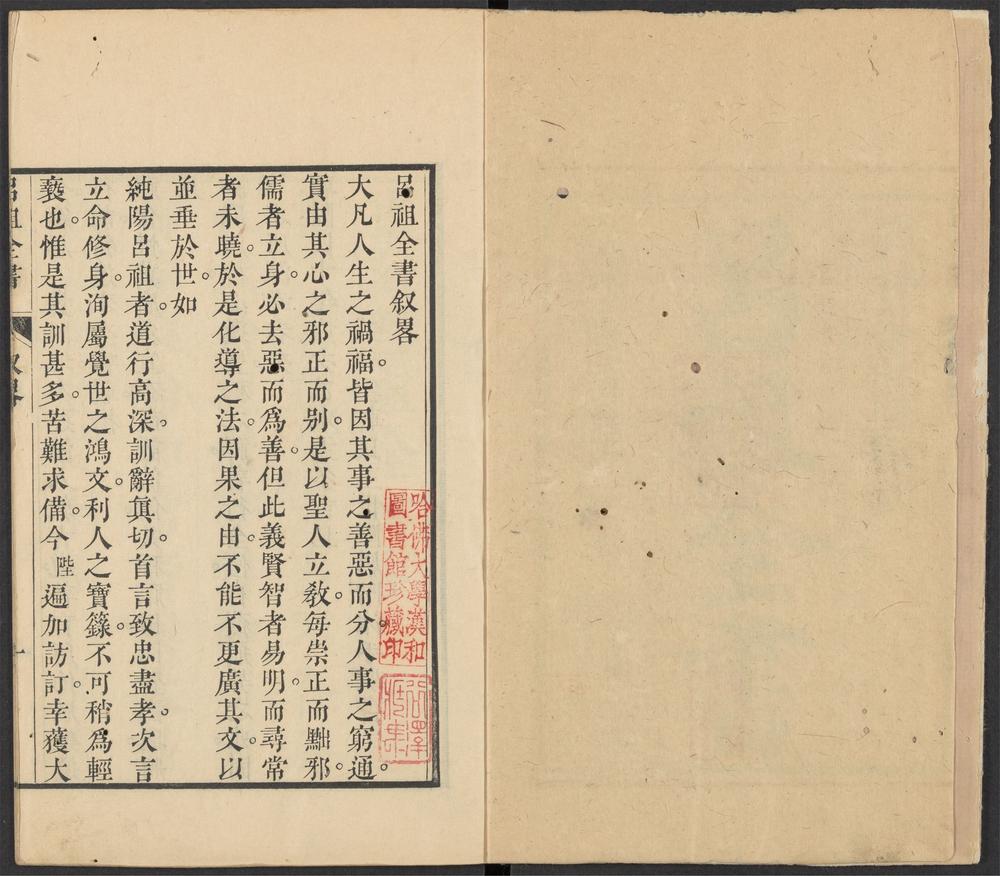 呂祖全書叙畧
大凡人生之禍福。皆因其事之善惡而分。人事之窮通。
實由其心之邪正而别。是以聖人立教。每崇正而黜邪。
儒者立身。必去惡而爲善。但此義賢智者易明。而尋常
者未曉。於是化導之法。因果之由。不能不更廣其文。以
並垂於世。如
純陽呂祖者。道行高深。訓辭眞切。首言致忠盡孝。次言
立命修身。洵屬覺世之鴻文。利人之寶籙。不可稍爲輕
褻也。惟是其訓甚多。苦難求備。今 陛 遍加訪訂。幸獲大
呂祖全書
叙畧
一
哈佛大學漢和
圖書館珍藏印